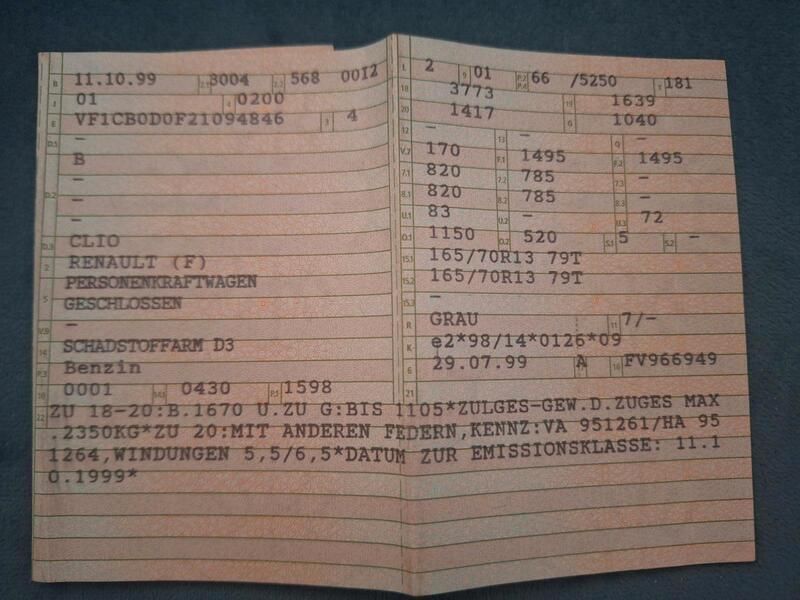 B 11.10.99 2.1 3004 2.2 568 00I2
J 01 4 0200
E VF1CB0D0F21094846 3 4
D.1 –
B
D.2 –
–
–
D.3 CLIO
2 RENAULT (F)
5 PERSONENKRAFTWAGEN
GESCHLOSSEN
V.9 –
14 SCHADSTOFFARM D3
P.3 Benzin
10 0001 14.1 0430 P.1 1598
L 2 9 01 P.2 P.4 66 /5250 T 181
18 3773 19 1639
20 1417 G 1040
12 – 13 – Q –
V.7 170 F.1 1495 F.2 1495
7.1 820 7.2 785 7.3 –
8.1 820 8.2 785 8.3 –
U.1 83 U.2 – U.3 72
O.1 1150 O.2 520 S.1 5 S.2 –
15.1 165/70R13 79T
15.2 165/70R13 79T
15.3 –
R GRAU 11 7/–
K e2*98/14*0126*09
6 29.07.99 17 A 16 FV966949
21
22 ZU 18-20:B.1670 U.ZU G:BIS 1105*ZULGES-GEW.D.ZUGES MAX
.2350KG*ZU 20:MIT ANDEREN FEDERN,KENNZ:VA 951261/HA 95
1264,WINDUNGEN 5,5/6,5*DATUM ZUR EMISSIONSKLASSE: 11.1
0.1999*